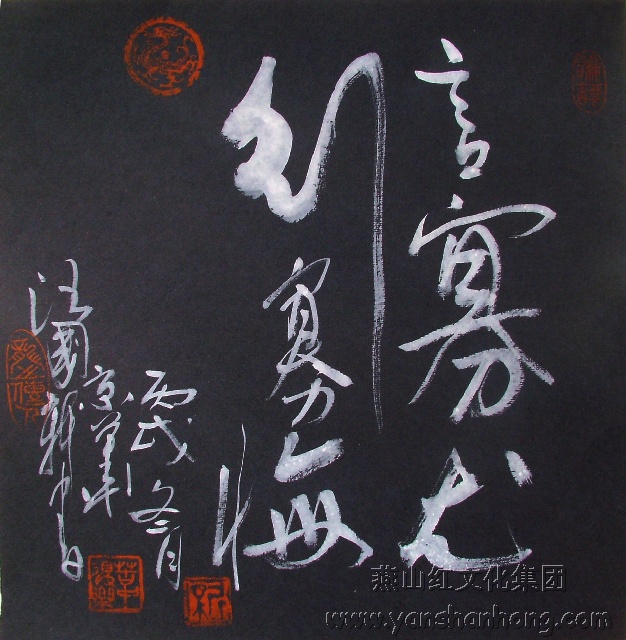 言寡尤
行寡悔
丙戌冬月
京華
汪國新
燕山红文化集团
www.yanshanhong.com